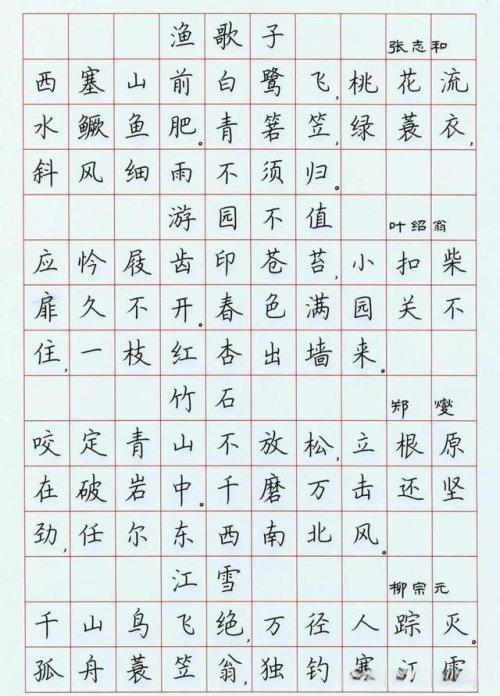 渔歌子 张志和
西塞山前白鹭飞,桃花流
水鳜鱼肥。青箬笠,绿蓑衣,
斜风细雨不须归。
游园不值 叶绍翁
应怜屐齿印苍苔,小扣柴
扉久不开。春色满园关不
住,一枝红杏出墙来。
竹石 郑燮
咬定青山不放松,立根原
在破岩中。千磨万击还坚
劲,任尔东西南北风。
江雪 柳宗元
千山鸟飞绝,万径人踪灭。
孤舟蓑笠翁,独钓寒江雪